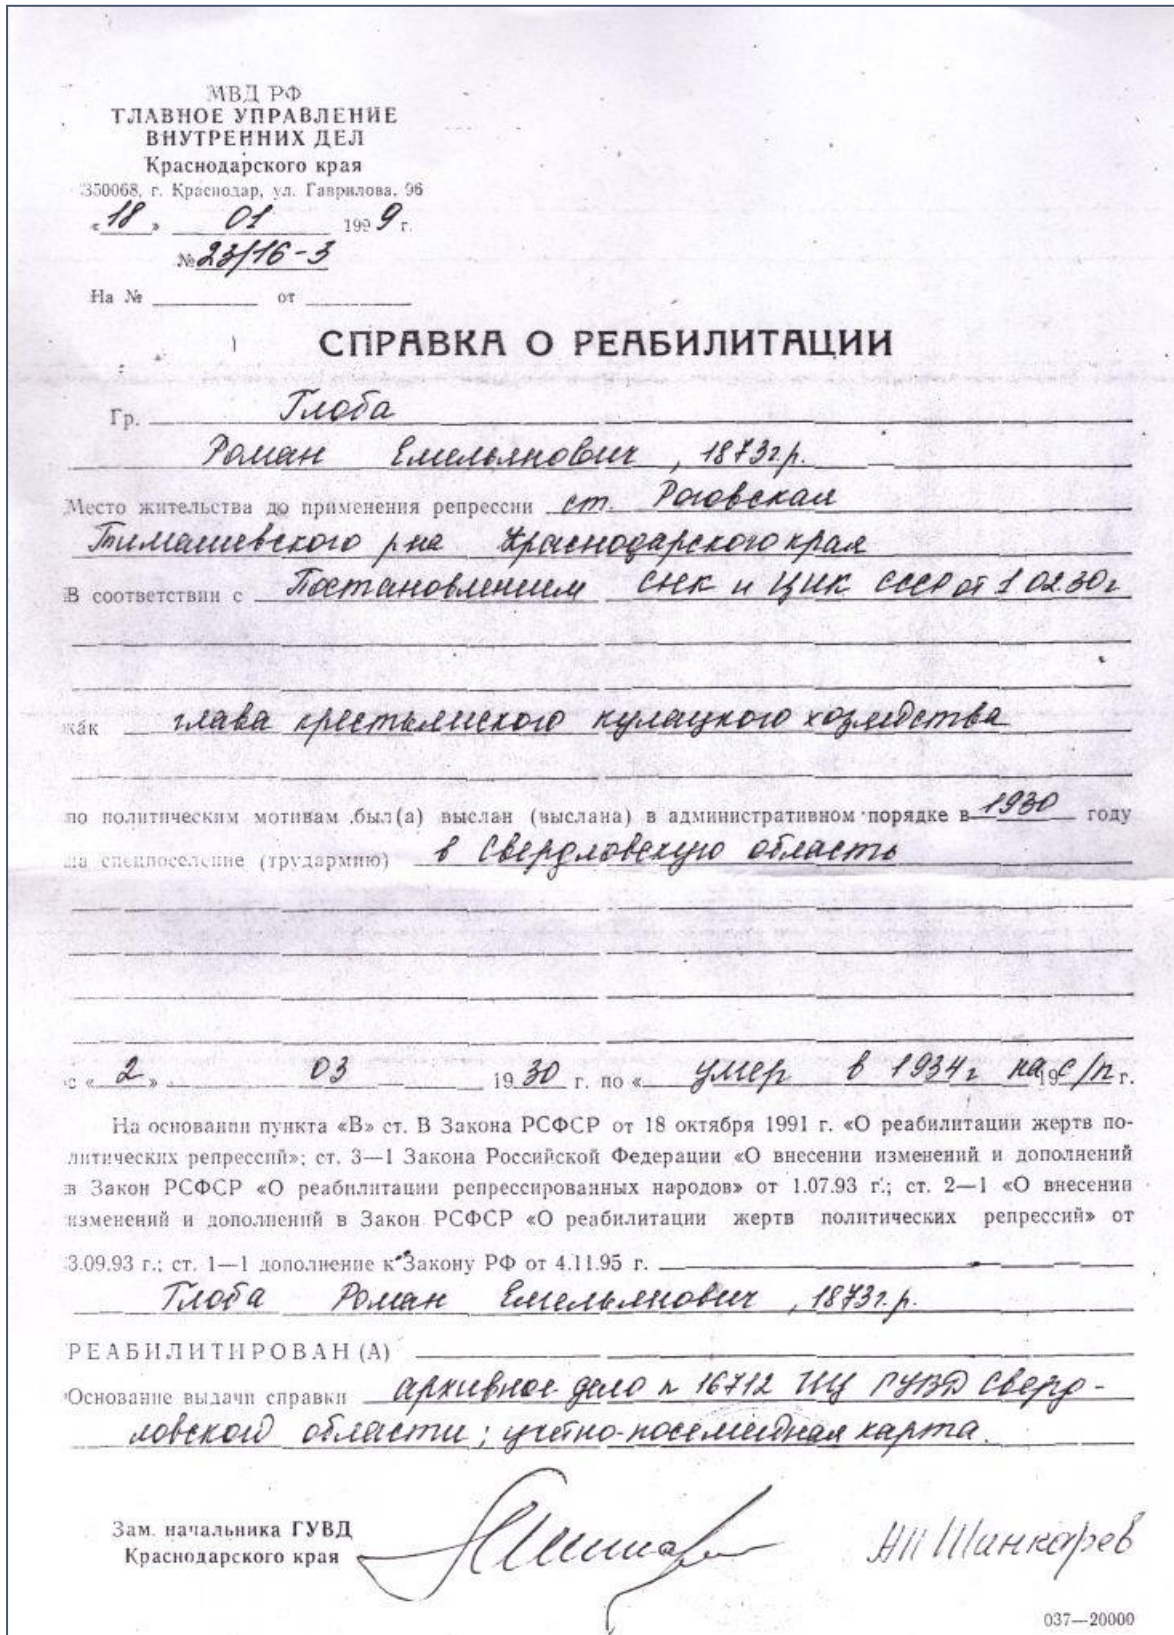 МВД РФ
ГЛАВНОЕ УПРАВЛЕНИЕ
ВНУТРЕННИХ ДЕЛ
Краснодарского края
350068, г. Краснодар, ул. Гаврилова, 96
«18» 01 1999 г.
№ 23/16-3
На № от
СПРАВКА О РЕАБИЛИТАЦИИ
Гр. Глоба
Роман Емельянович, 1873г.р.
Место жительства до применения репрессии ст. Роговская
Тимашевского р-на Краснодарского края
В соответствии с Постановлением СНК и ЦИК СССР от 1 02.30г
как глава крестьянского кулацкого хозяйства
по политическим мотивам был(а) выслан (выслана) в административном порядке в 1930 году
на спецпоселение (трудармию) в Свердловскую область
с «2» 03 1930 г. по « умер в 1934г на 19 с/п г.
На основании пункта «В» ст. В Закона РСФСР от 18 октября 1991 г. «О реабилитации жертв по-
литических репрессий»; ст. 3—1 Закона Российской Федерации «О внесении изменений и дополнений
в Закон РСФСР «О реабилитации репрессированных народов» от 1.07.93 г.; ст. 2—1 «О внесении
изменений и дополнений в Закон РСФСР «О реабилитации жертв политических репрессий» от
3.09.93 г.; ст. 1—1 дополнение к Закону РФ от 4.11.95 г.
Глоба Роман Емельянович, 1873г.р.
РЕАБИЛИТИРОВАН (А)
Основание выдачи справки архивное дело № 16712 ИЦ ГУВД Сверд-
ловской области; учетно-посемейная карта.
Зам. начальника ГУВД
Краснодарского края
АП Шинкарев
037—20000